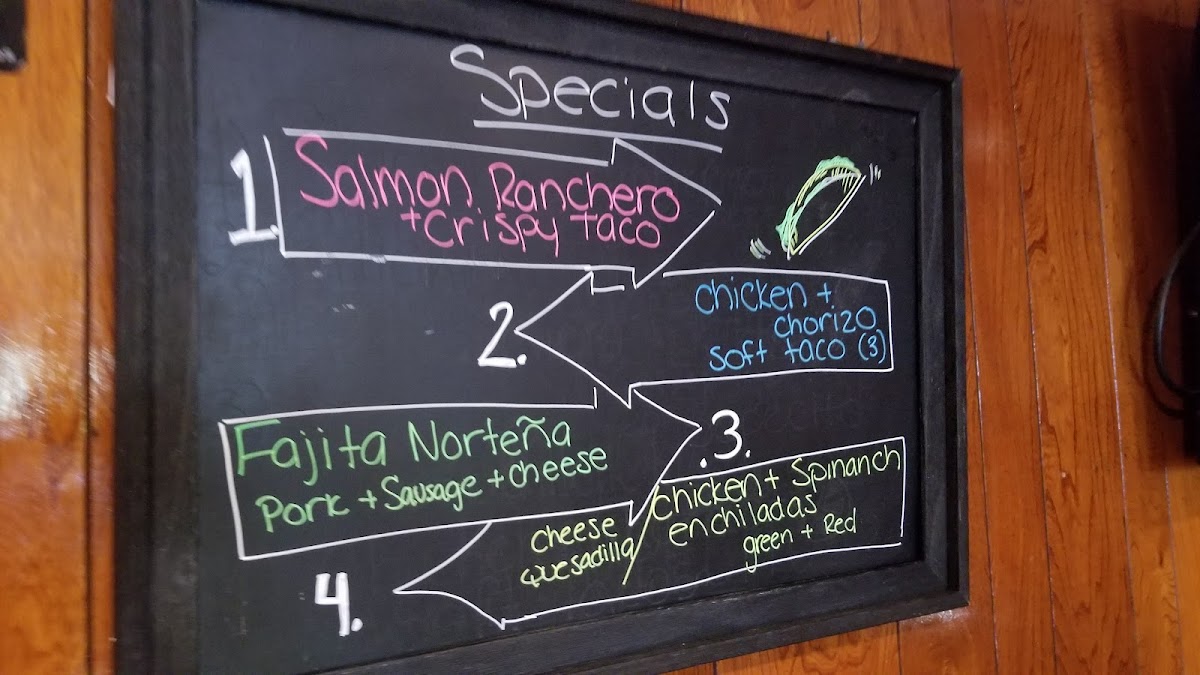 Specials
1. Salmon Ranchero
+ Crispy taco
2. chicken +
chorizo
soft taco (3)
.3.
Fajita Norteña
Pork + Sausage + Cheese
4. cheese
quesadilla
chicken + Spinanch
enchiladas
green + Red